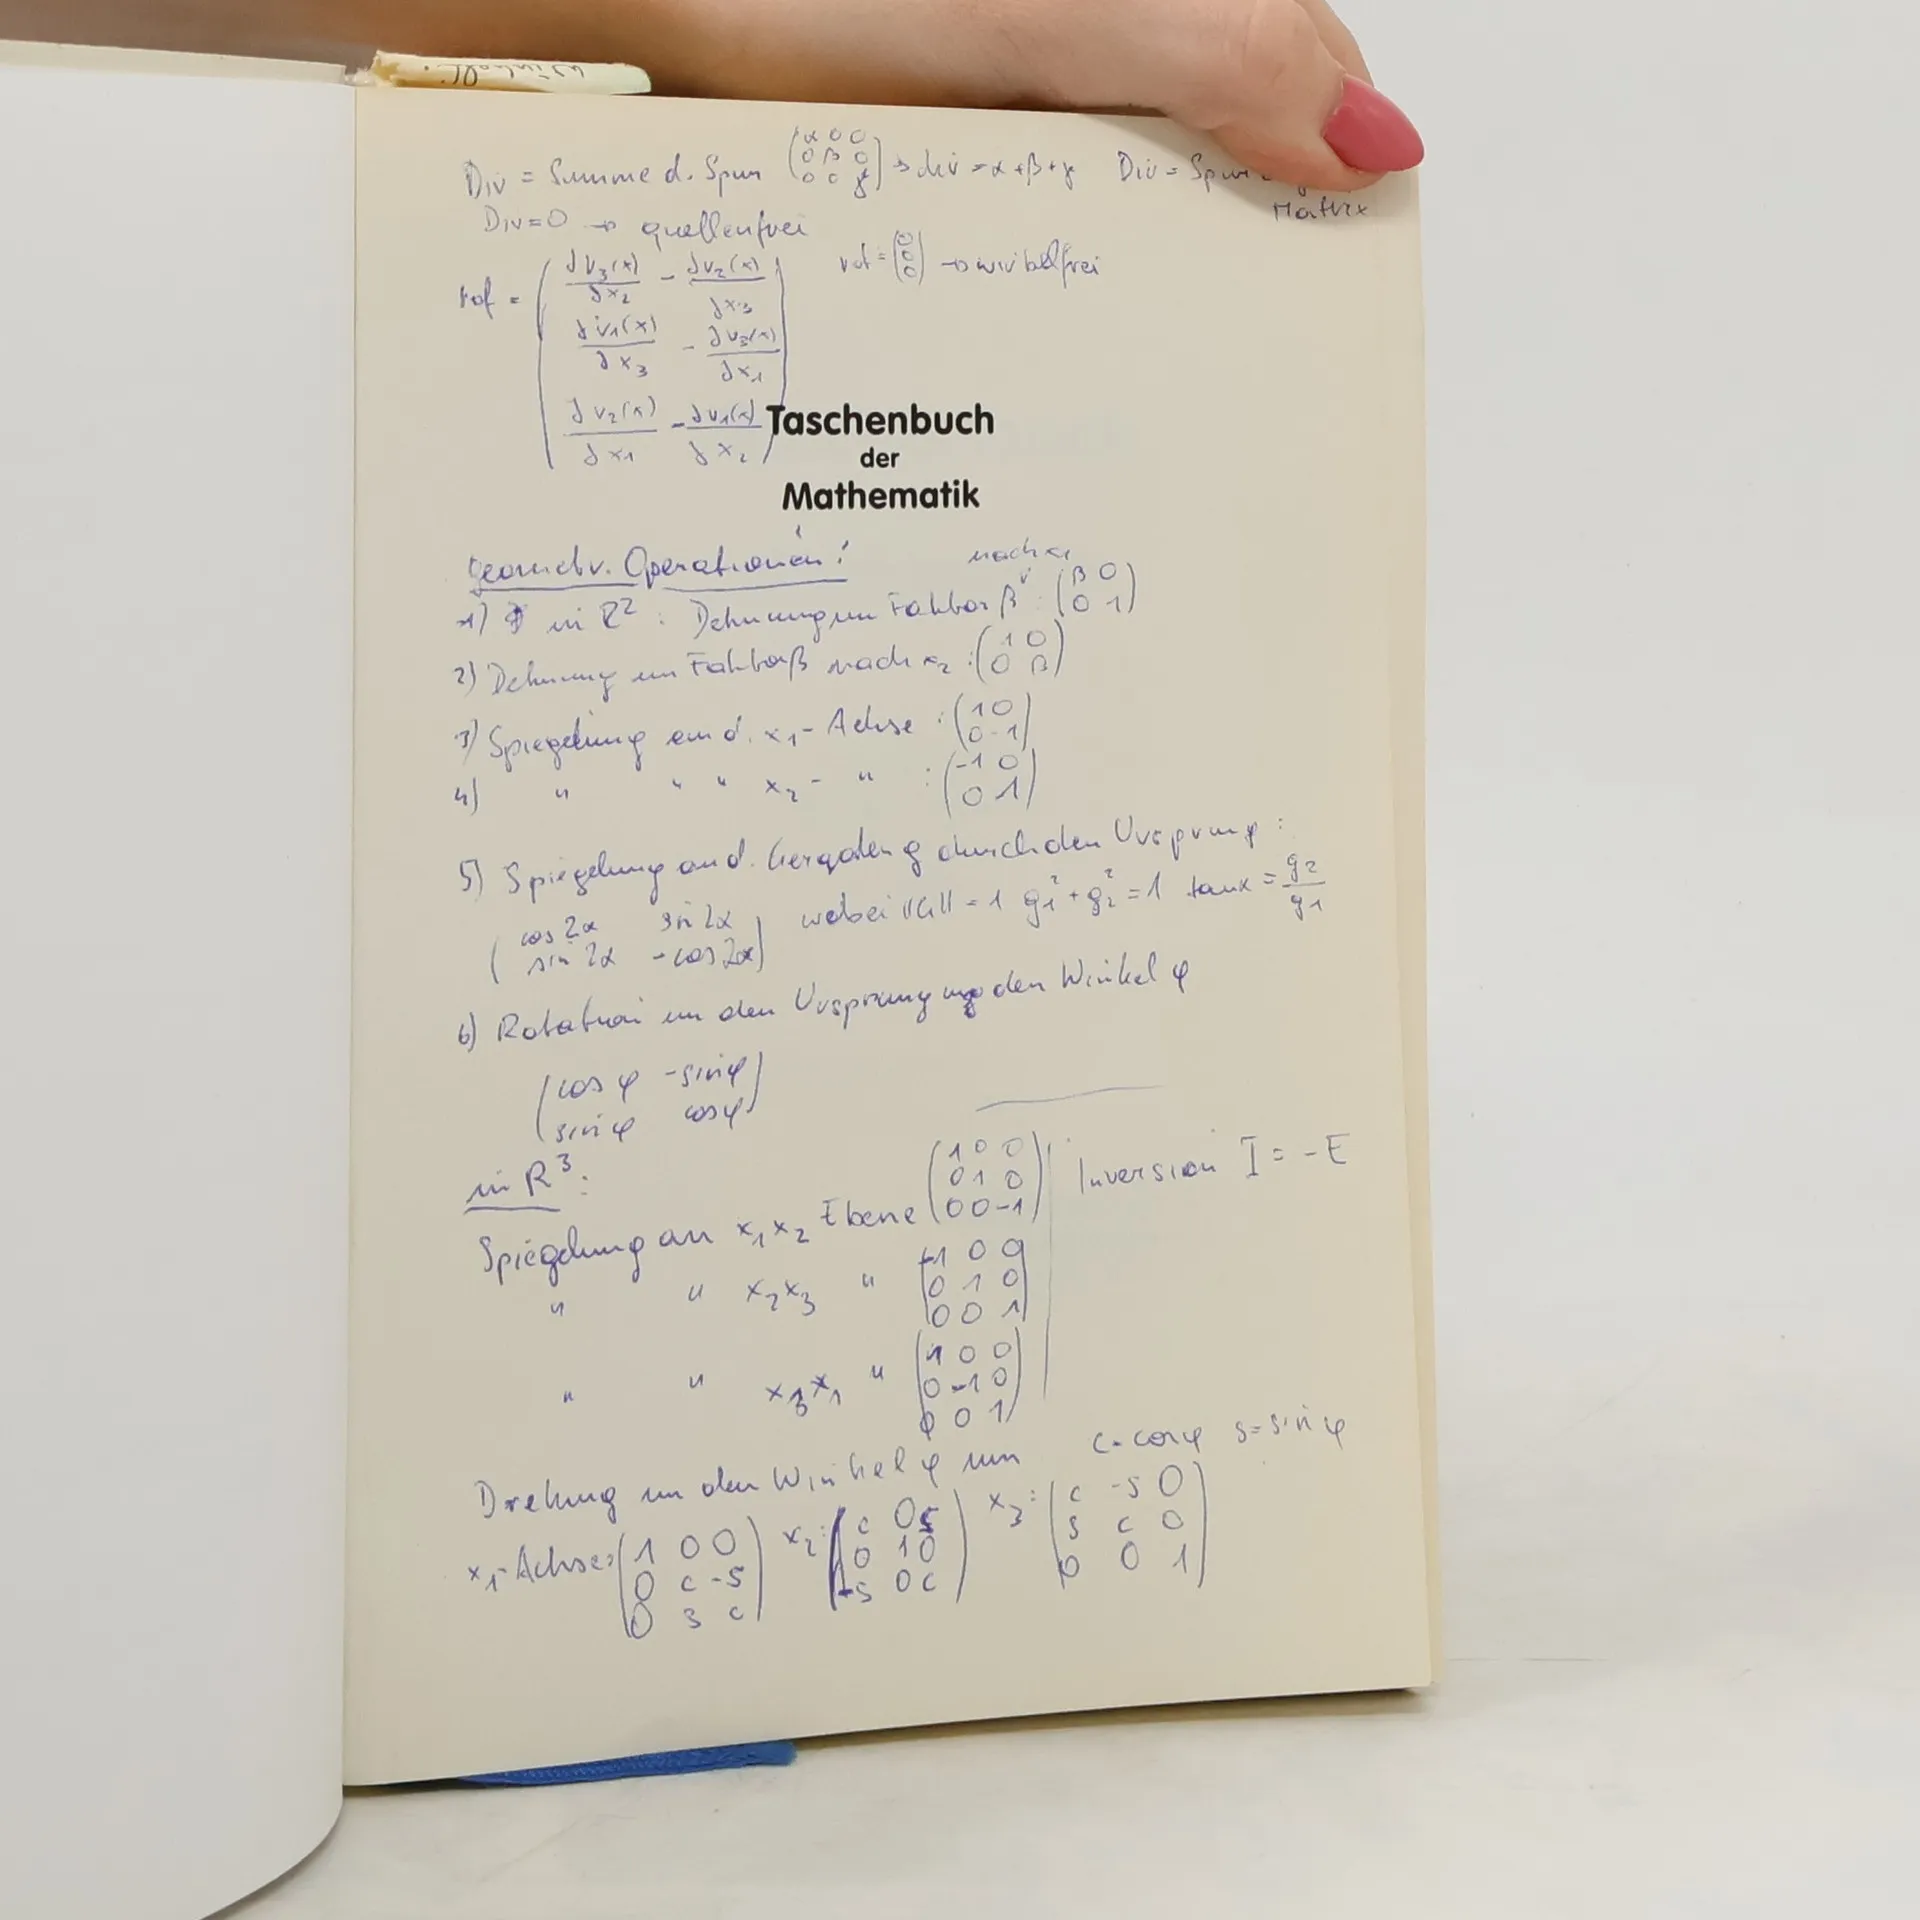 Div = Summe d. Spur (α 0 0 / 0 β 0 / 0 0 γ) → div = α + β + γ Div = Spur
Matrix
Div = 0 → quellenfrei
rot = (0 / 0 / 0) → wirbelfrei
rot = (∂v₃(x)/∂x₂ - ∂v₂(x)/∂x₃
∂v₁(x)/∂x₃ - ∂v₃(x)/∂x₁
∂v₂(x)/∂x₁ - ∂v₁(x)/∂x₂)
Taschenbuch
der
Mathematik
geometr. Operationen:
1) in R²: Dehnung um Faktor β nach x₁ : (β 0 / 0 1)
2) Dehnung um Faktor β nach x₂ : (1 0 / 0 β)
3) Spiegelung an d. x₁-Achse : (1 0 / 0 -1)
4) " " " x₂- " : (-1 0 / 0 1)
5) Spiegelung an d. Geraden g durch den Ursprung :
(cos 2α sin 2α / sin 2α -cos 2α) wobei ||G|| = 1 g₁² + g₂² = 1 tan α = g₂/g₁
6) Rotation um den Ursprung den Winkel φ
(cos φ -sin φ / sin φ cos φ)
in R³:
Spiegelung an x₁x₂ Ebene (1 0 0 / 0 1 0 / 0 0 -1) Inversion I = -E
" " x₂x₃ " (-1 0 0 / 0 1 0 / 0 0 1)
" " x₃x₁ " (1 0 0 / 0 -1 0 / 0 0 1)
Drehung um den Winkel φ um c = cos φ s = sin φ
x₁-Achse: (1 0 0 / 0 c -s / 0 s c) x₂: (c 0 s / 0 1 0 / -s 0 c) x₃: (c -s 0 / s c 0 / 0 0 1)